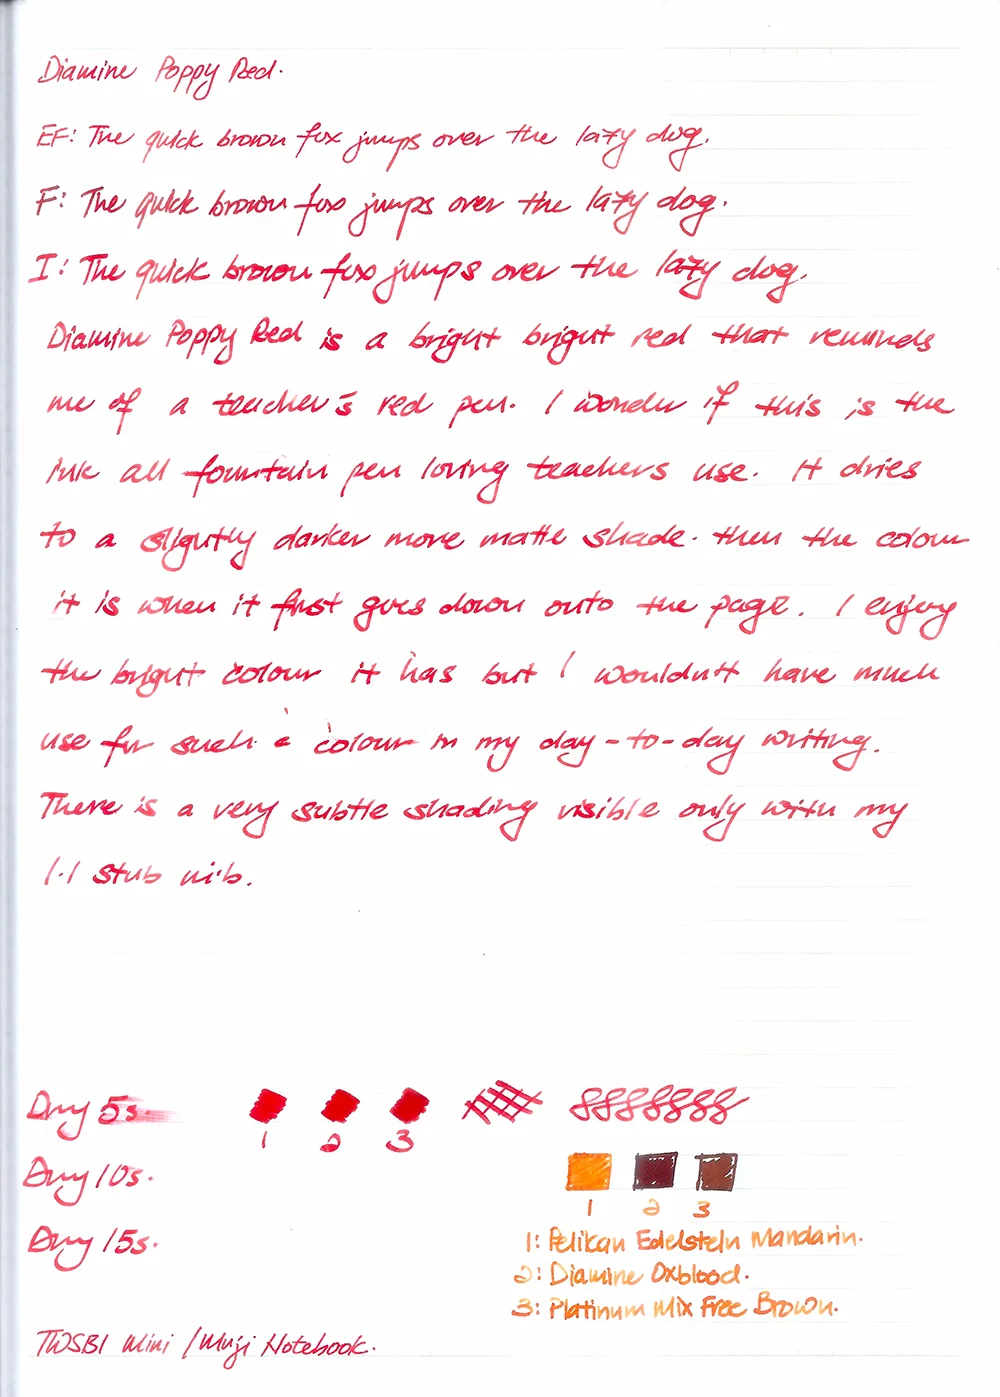 Diamine Poppy Red.
EF: The quick brown fox jumps over the lazy dog.
F: The quick brown fox jumps over the lazy dog.
I: The quick brown fox jumps over the lazy dog.
Diamine Poppy Red is a bright bright red that reminds
me of a teacher's red pen. I wonder if this is the
ink all fountain pen loving teachers use. It dries
to a slightly darker more matte shade. then the colour
it is when it first goes down onto the page. I enjoy
the bright colour it has but I wouldn't have much
use for such a colour in my day-to-day writing.
There is a very subtle shading visible only with my
1.1 stub nib.
Dry 5s.
1 2 3
Dry 10s.
1 2 3
Dry 15s.
1: Pelikan Edelstein Mandarin.
2: Diamine Oxblood.
3: Platinum Mix Free Brown.
TWSBI Mini / Muji Notebook.